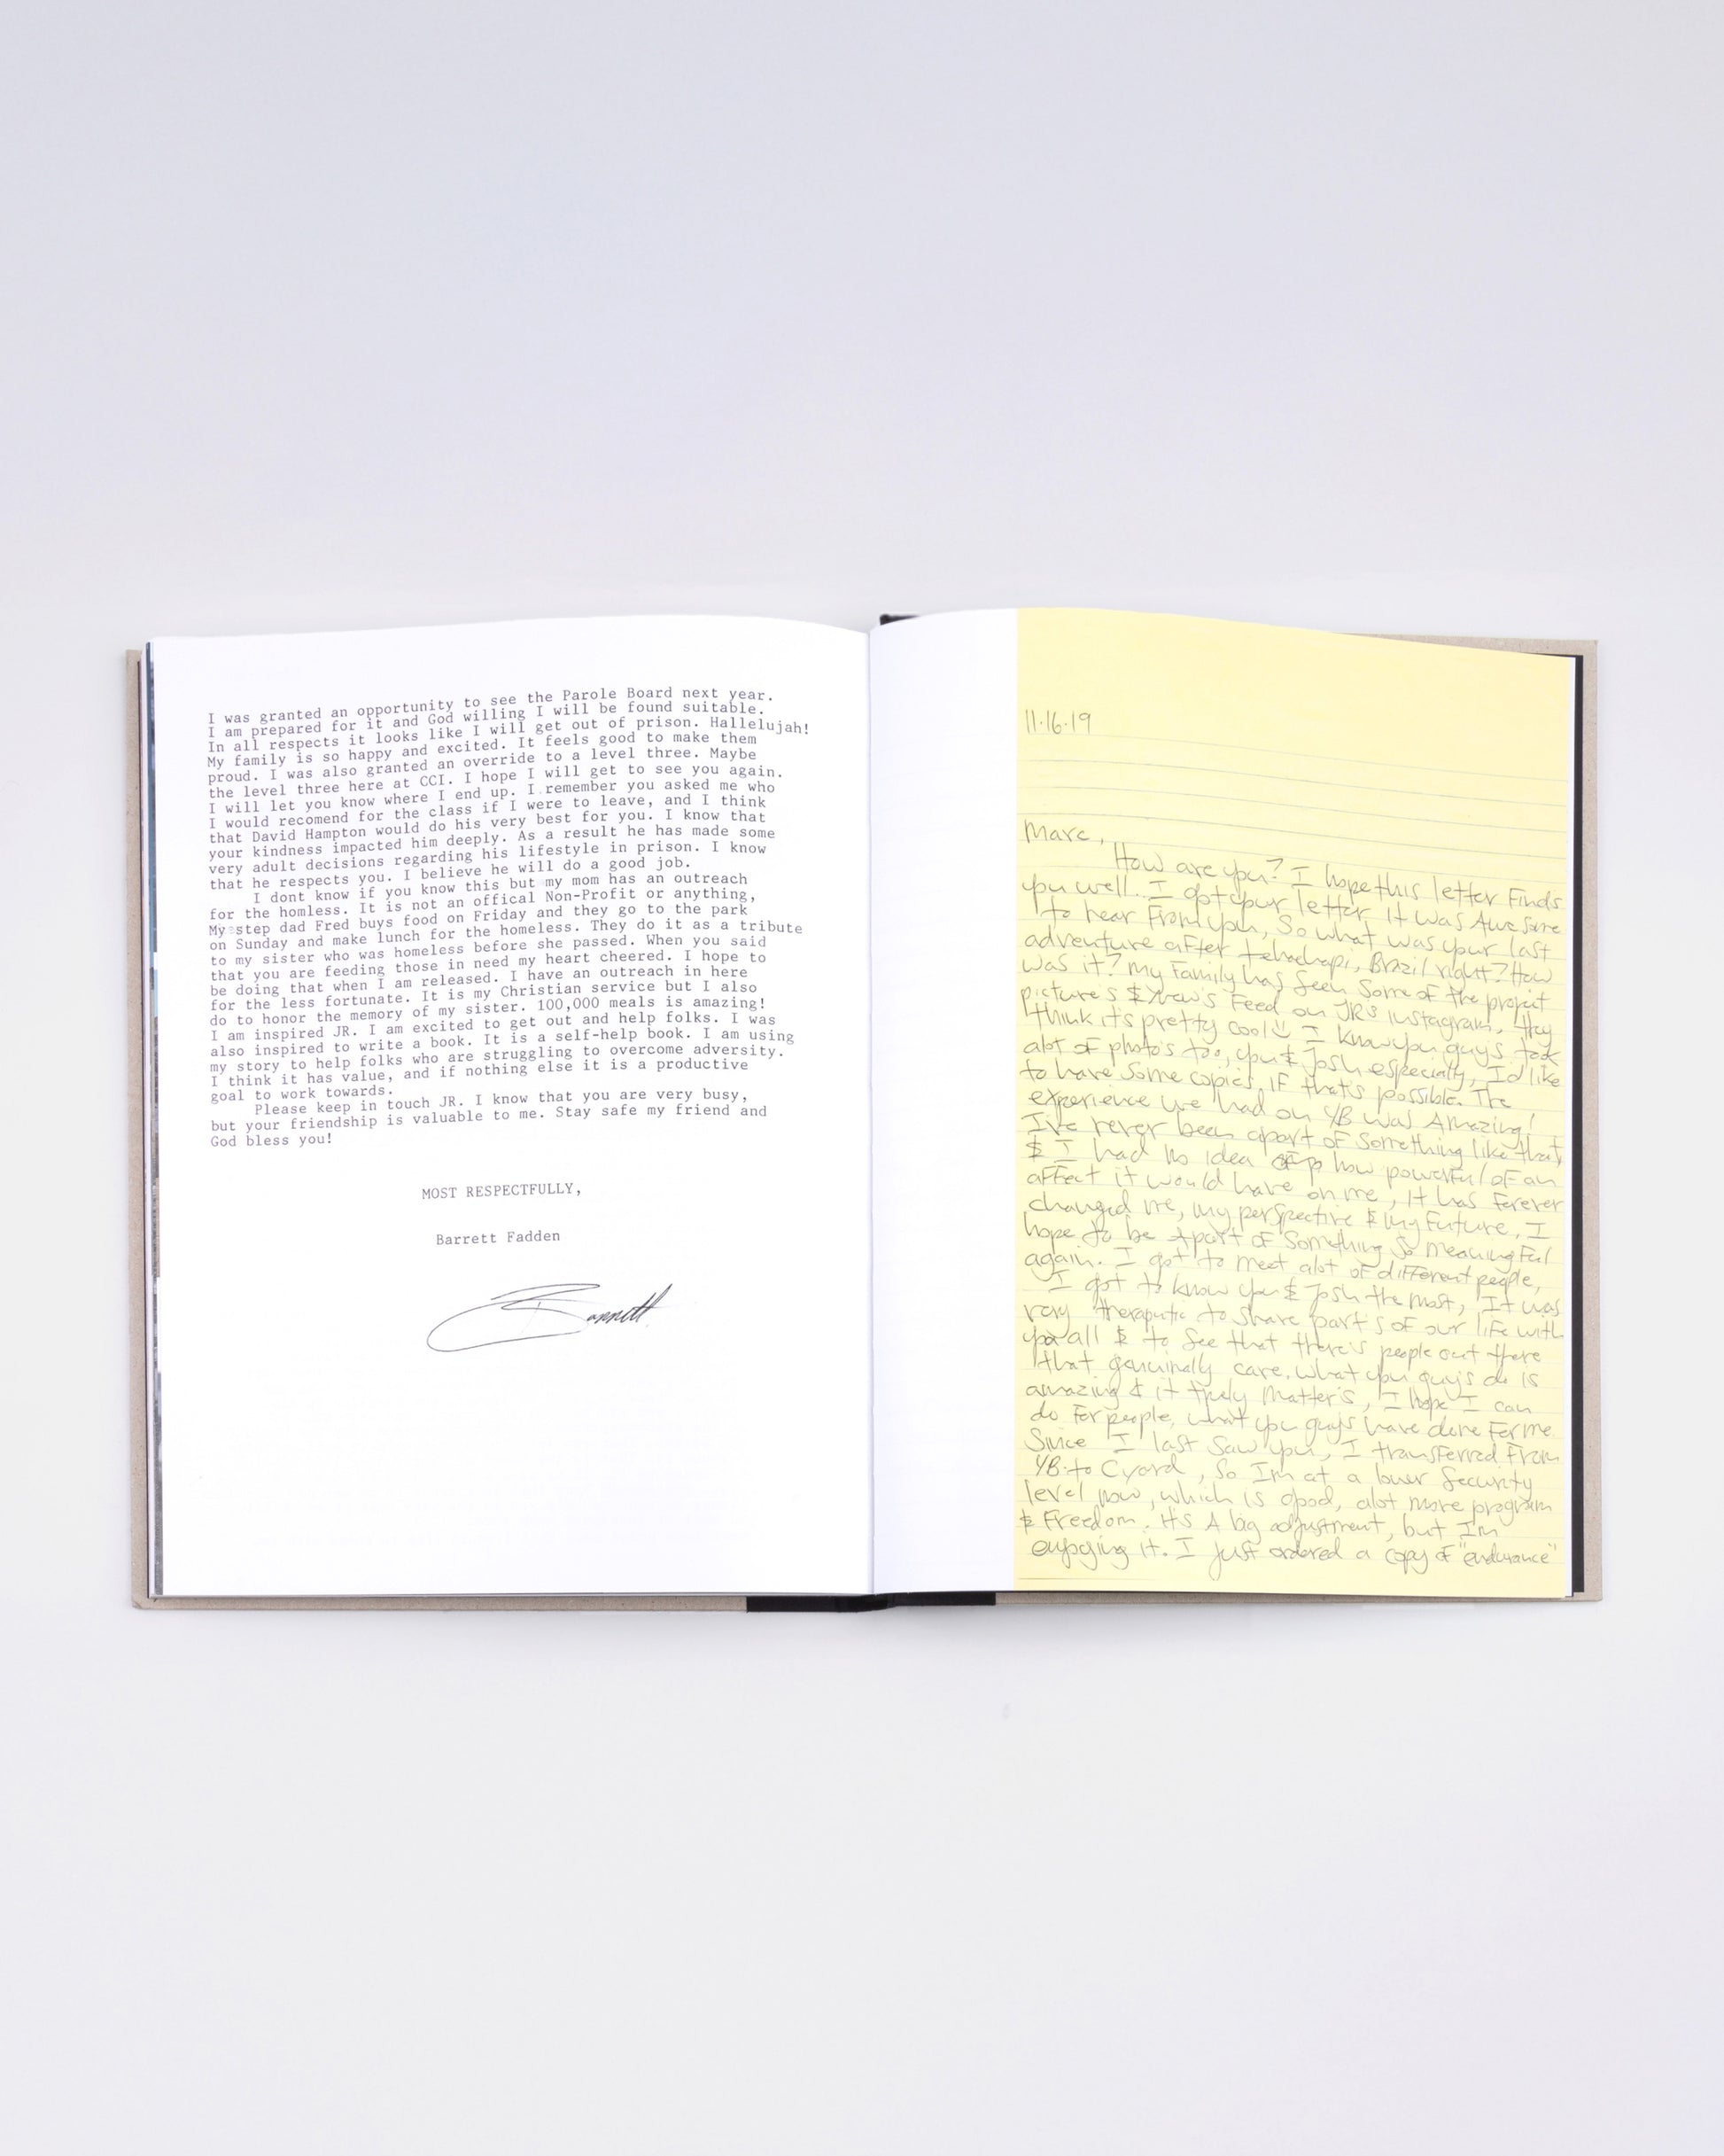 I was granted an opportunity to see the Parole Board next year.
I am prepared for it and God willing I will be found suitable.
In all respects it looks like I will get out of prison. Hallelujah!
My family is so happy and excited. It feels good to make them
proud. I was also granted an override to a level three. Maybe
the level three here at CCI. I hope I will get to see you again.
I will let you know where I end up. I remember you asked me who
I would recomend for the class if I were to leave, and I think
that David Hampton would do his very best for you. I know that
your kindness impacted him deeply. As a result he has made some
very adult decisions regarding his lifestyle in prison. I know
that he respects you. I believe he will do a good job.
I dont know if you know this but my mom has an outreach
for the homless. It is not an offical Non-Profit or anything,
My step dad Fred buys food on Friday and they go to the park
on Sunday and make lunch for the homeless. They do it as a tribute
to my sister who was homeless before she passed. When you said
that you are feeding those in need my heart cheered. I hope to
be doing that when I am released. I have an outreach in here
for the less fortunate. It is my Christian service but I also
do to honor the memory of my sister. 100,000 meals is amazing!
I am inspired JR. I am excited to get out and help folks. I was
also inspired to write a book. It is a self-help book. I am using
my story to help folks who are struggling to overcome adversity.
I think it has value, and if nothing else it is a productive
goal to work towards.
Please keep in touch JR. I know that you are very busy,
but your friendship is valuable to me. Stay safe my friend and
God bless you!
MOST RESPECTFULLY,
Barrett Fadden
Barrett
11.16.19
Marc,
How are you? I hope this letter Finds
you well. I got your letter, It was Awesome
to hear From you, So what was your last
adventure aFter tehachapi, Brazil right? How
was it? My Family has seen Some of the project
picture's & New's Feed on JR's instagram, they
think it's pretty cool I know you guy's took
alot of photo's too, you & Josh especially, I'd like
to have some copies, IF that's possible. The
experience we had on 4B was Amazing!
I've never been apart oF Something like that,
& I had no idea how powerful oF an
aFFect it would have on me, It has Forever
changed me, my perspective & my Future, I
hope to be apart oF Something So meaningFul
again. I got to meet alot oF diFFerent people,
I got to know you & Josh the most, It was
very theraputic to share part's oF our liFe with
you all & to See that there's people out there
that genuinally care. what you guy's do is
amazing & it truly Matter's, I hope I can
do For people, what you guys have done For me.
Since I last Saw you, I transFerred From
4B to Cyard, So I'm at a lower Security
level now, which is good, alot more program
& Freedom. It's A big adjustment, but I'm
enjoying it. I just ordered a copy oF "endurance"